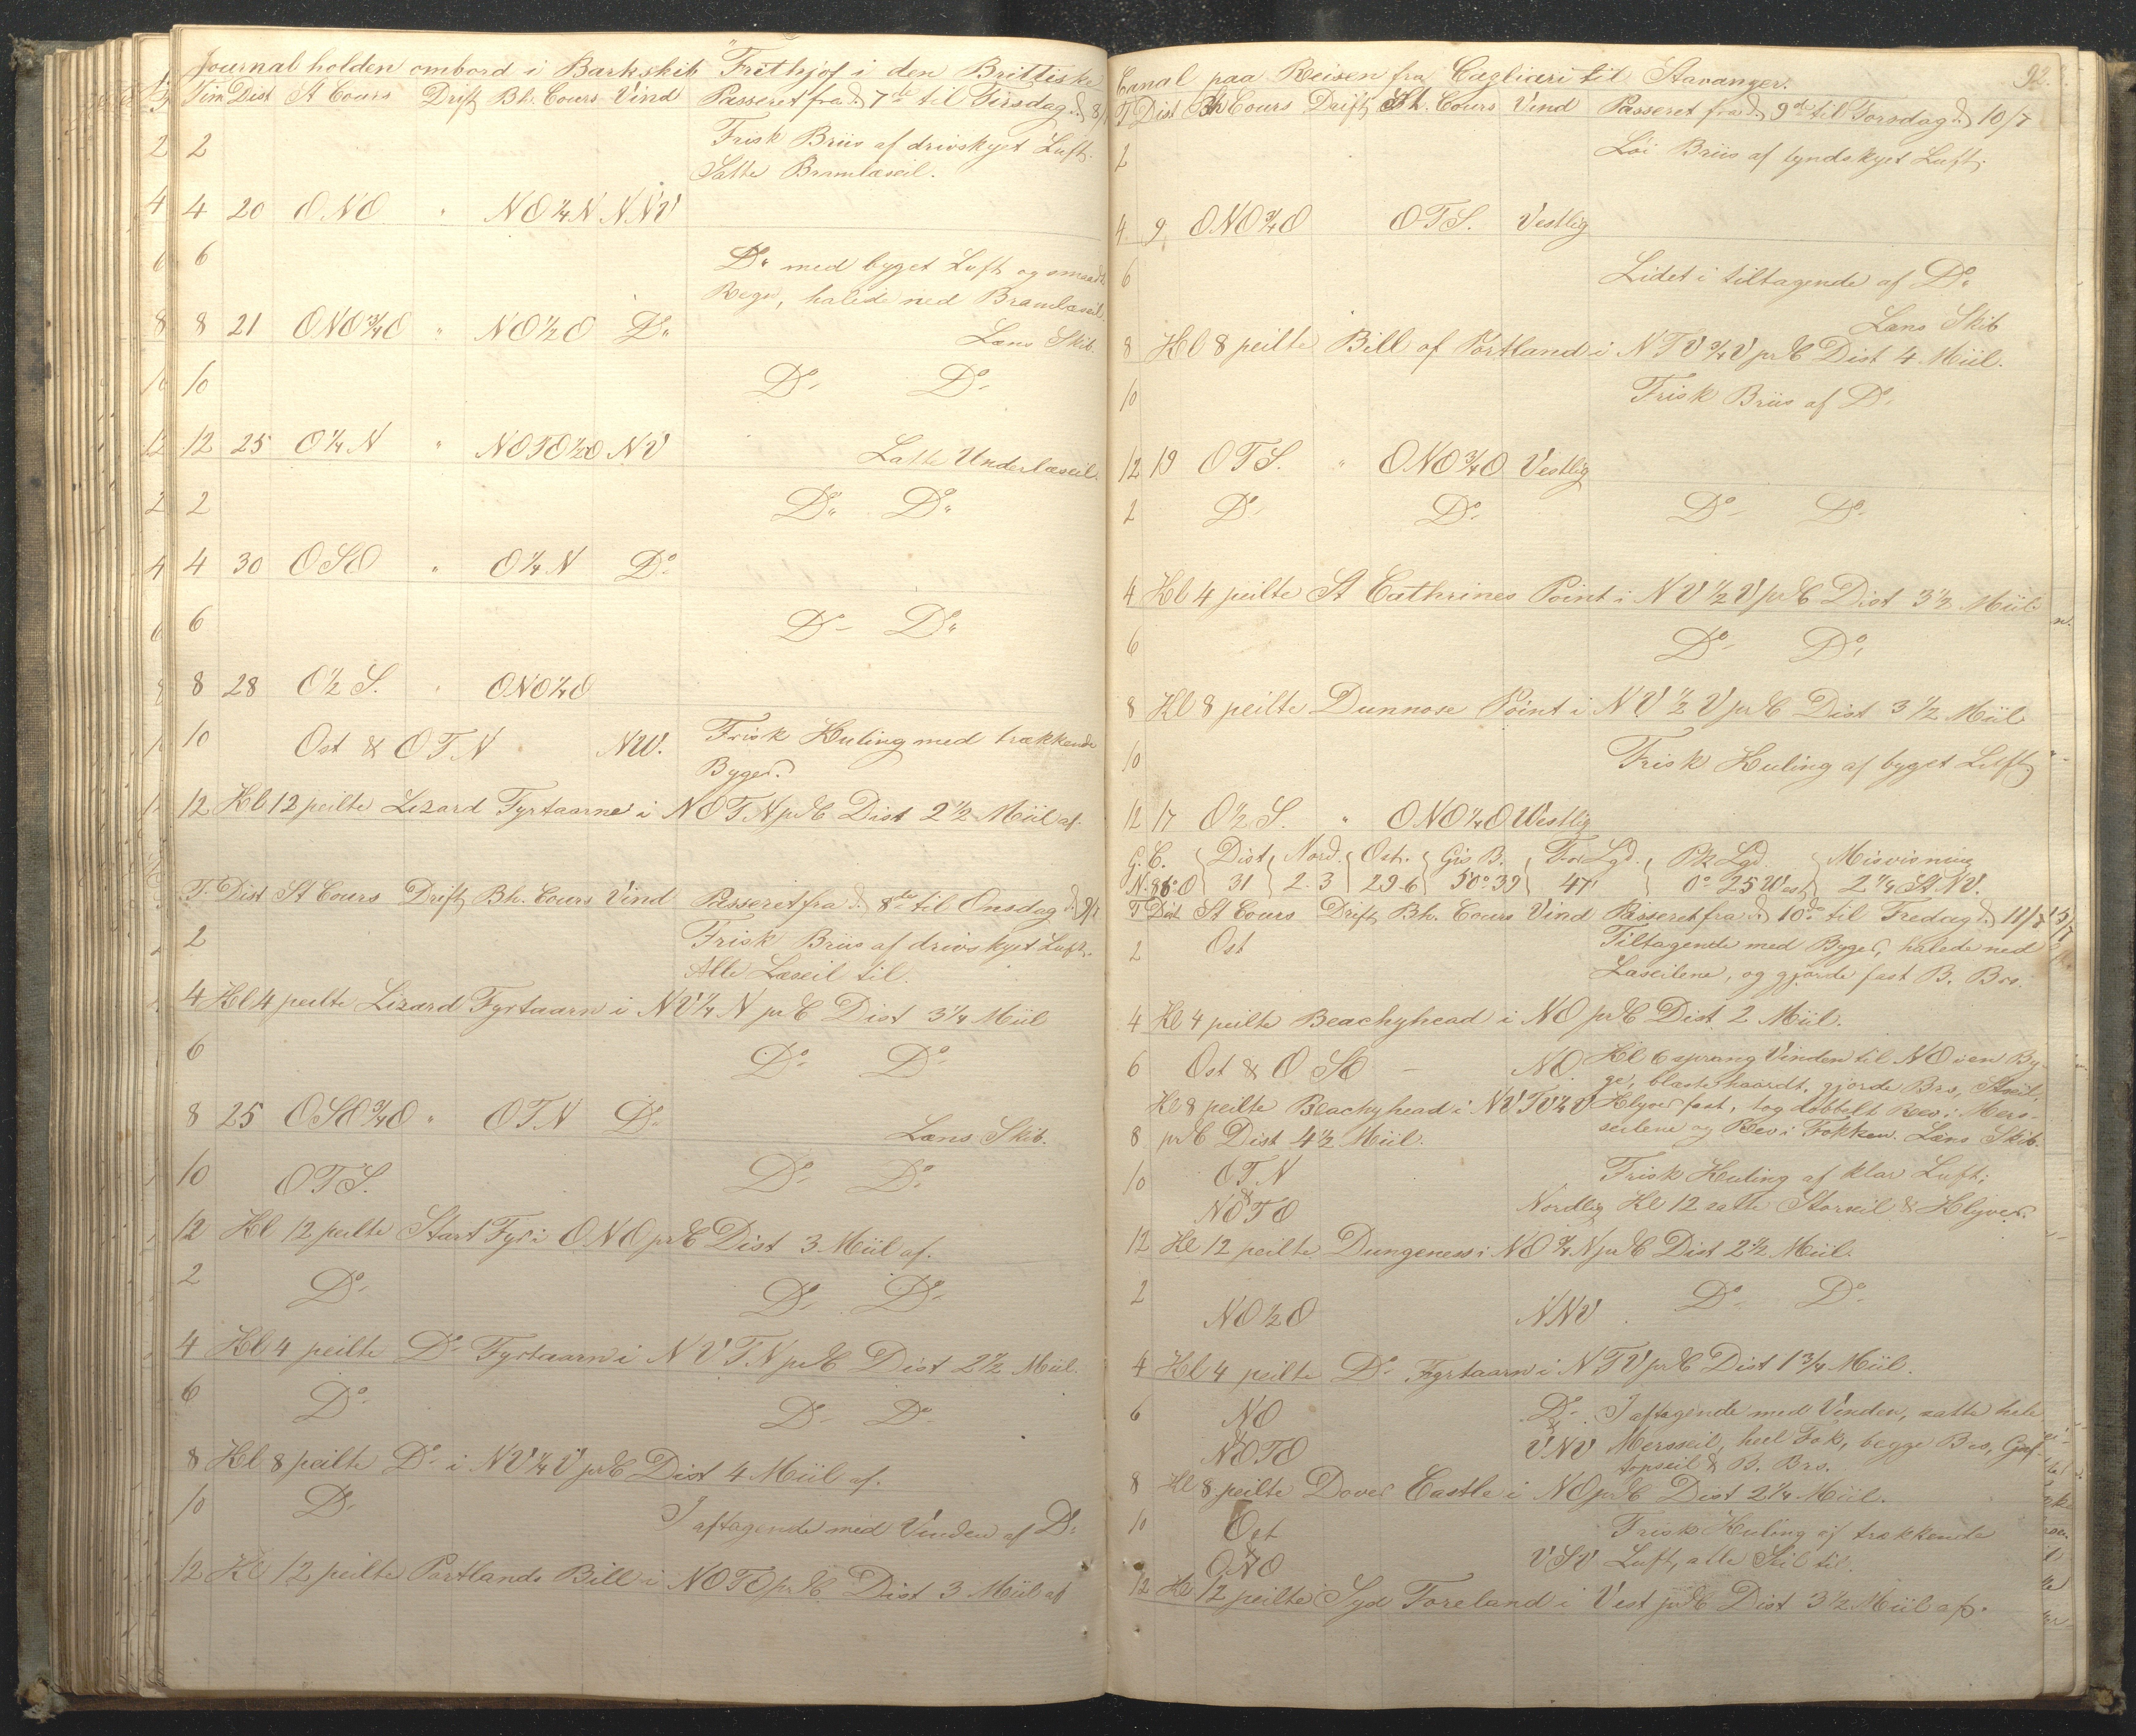 Journal holden ombord i Barkskib "Frithjof i den Brittiske
Tim Dist St Cours Drift Bh. Cours Vind Passeret fra d. 7de til Tirsdag d. 8/7
2 Frisk Briis af drivskyet Luft.
Satte Bramlæseil.
4 20 ONO " NO¼N NNV
6 Do med byget Luft og smaat
Regn, halede ned Bramlæseil.
8 21 ONO¾O " NO½O Do Læns Skib.
10 Do Do
12 25 O¼N " NOTO½O NV Satte Underlæseil.
2 Do Do
4 30 OSO " O¼N Do
6 Do Do
8 28 O½S. " ONO¼O
10 Ost & OTN NW. Frisk Kuling med trækkende
Byger.
12 Kl 12 peilte Lizard Fyrtaarne i NOTN pr C Dist 2½ Miil af.
T. Dist St Cours Drift Bh. Cours Vind Passeret fra d. 8de til Onsdag d. 9/7
2 Frisk Briis af drivskyet Luft.
Alle Læseil til.
4 Kl 4 peilte Lizard Fyrtaarn i NV¼N pr C Dist 3¼ Miil
6 Do Do
8 25 OSO¾O " OTN Do Læns Skib.
10 OTS. Do Do
12 Kl 12 peilte Start Fyr i ONO pr C Dist 3 Miil af.
2 Do Do Do
4 Kl 4 peilte Do Fyrtaarn i NVTN pr C Dist 2½ Miil.
6 Do Do Do
8 Kl 8 peilte Do i NV¼V pr C Dist 4 Miil af.
10 Do I aftagende med Vinden af Do
12 Kl 12 peilte Portlands Bill i NOTO pr C Dist 3 Miil af
92.
Canal paa Reisen fra Cagliari til Stavanger.
T Dist Bh Cours Drift St. Cours Vind Passeret fra d. 9de til Torsdag d. 10/7
2 Løi Briis af tyndskyet Luft.
4 9 ONO¾O OTS. Vestlig
6 Lidet i tiltagende af Do
Læns Skib
8 Kl 8 peilte Bill of Portland i NTV¾V pr C Dist 4 Miil.
10 Frisk Briis af Do
12 19 OTS. " ONO¾O Vestlig
2 Do Do Do Do
4 Kl 4 peilte St Cathrines Point i NV½V pr C Dist 3½ Miil
6 Do Do
8 Kl 8 peilte Dunnose Point i NV½V pr C Dist 3½ Miil
10 Frisk Kuling af byget Luft
12 17 O½S. " ONO¼O Westlig
G. C. Dist Nord. Ost. Gis B. For Lgd. Pk Lgd. Misvisning
N.86°O 31 2.3 29.6 50°39 47' 0°25 West 2¼ St NV.
T Dist St Cours Drift Bh. Cours Vind Passeret fra d. 10de til Fredag d. 11/7
2 Ost Tiltagende med Byger, halede ned
Læseilene, og gjorde fast B. Brs.
4 Kl 4 peilte Beachyhead i NO pr C Dist 2 Miil.
6 Ost & OSO – NO Kl 6 sprang Vinden til NO i en By-
ge, blæste haardt, gjorde Brs, Storseil,
Kl 8 peilte Beachyhead i NVTV½V Klyver fast, tog dobbelt Rev i Mers-
8 pr C Dist 4½ Miil. seilene og Rev i Fokken. Læns Skib.
10 OTN Frisk Kuling af klar Luft;
& NOTO Nordlig Kl 12 satte Storseil & Klyver.
12 Kl 12 peilte Dungeness i NO¾N pr C Dist 2½ Miil.
2 NO½O NNV Do Do
4 Kl 4 peilte Do Fyrtaarn i NTV pr C Dist 1¾ Miil.
6 NO Do I aftagende med Vinden, satte hele
& NOTO & VNV Mersseil, heel Fok, begge Brs, Gaf-
topseil & B. Brs.
8 Kl 8 peilte Dover Castle i NO pr C Dist 2¼ Miil.
10 Ost Frisk Kuling af trækkende
& ONO VSV Luft, alle Seil til.
12 Kl 12 peilte Syd Foreland i Vest pr C Dist 3½ Miil af.